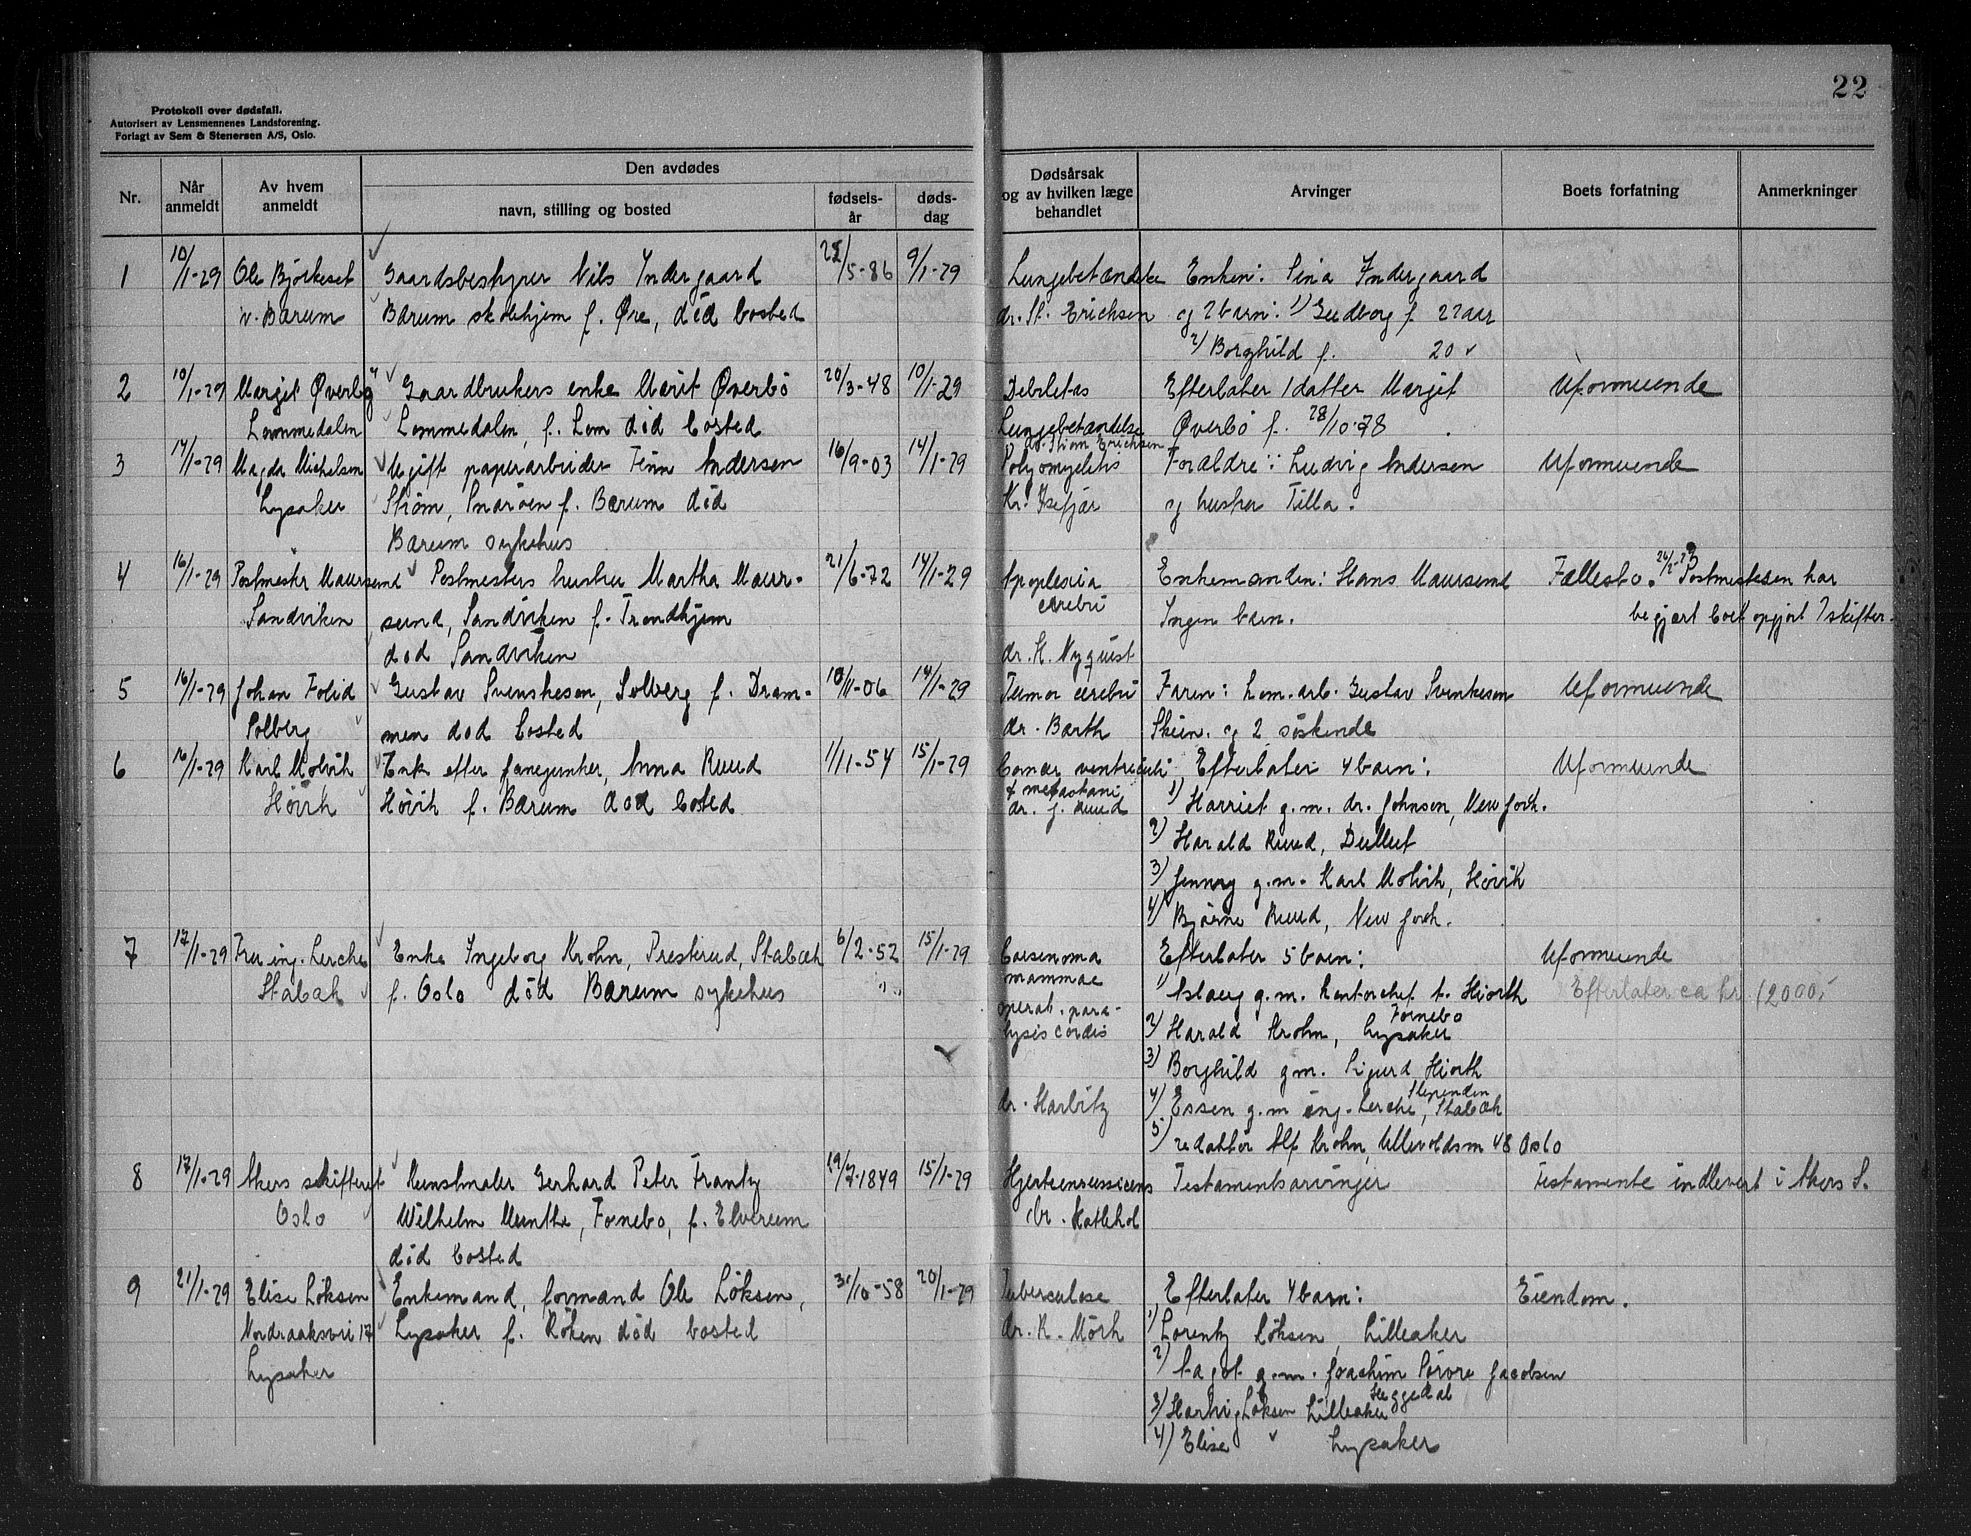 22
Protokoll over dødsfall.
Autorisert av Lensmennenes Landsforening.
Forlagt av Sem & Stenersen A/S, Oslo.
Nr. Når anmeldt Av hvem anmeldt Den avdødes navn, stilling og bosted fødselsår dødsdag Dødsårsak og av hvilken læge behandlet Arvinger Boets forfatning Anmerkninger
1 10/1-29 Ole Bjørkeset Gaardsbestyrer Nils Indergaard /5-86 9/1-29 Lungebetændelse Enken: Sina Indergaard
v. Bærum Bærum skolehjem f. Øre, død bosted dr. St. Erichsen og 2 barn: 1) Gudborg f. 22 aar
2) Borghild f. 20 "
2 10/1-29 Margit Øverbø Gaardbrukers enke Marit Øverbø 20/3-48 10/1-29 Debiletas Efterlater 1 datter Margit Uformuende
Lommedalen Lommedalen, f. Lom død bosted Lungebetændelse Øverbø f. 28/10-78
dr. Stian Erichsen
3 17/1-29 Magda Michelsen Ugift papirarbeider Finn Andersen 16/9-03 14/1-29 Polyomyelitis Forældre: Ludvig Andersen Uformuende
Lysaker Strøm, Snarøen f. Bærum død Kr. Isefjær og hustru Tilla.
Bærum sykehus
4 16/1-29 Postmester Maursund Postmesters hustru Martha Maur- 21/6-72 14/1-29 Apoplexia Enkemanden: Hans Maursund Fællesbo. Postmesteren har
Sandviken sund, Sandviken f. Trondhjem cerebri Ingen barn. begjært boet opgjort i skifter.
død Sandviken dr. H. Nyquist
5 16/1-29 Johan Folid Gustav Svenkesen, Solberg f. Dram- 10/11-06 14/1-29 Tumor cerebri Faren: kom. arb. Gustav Svenkesen Uformuende
Solberg men død bosted dr. Barth Skien. og 2 søskende
6 16/1-29 Karl Molvik Enke efter fanejunker, Anna Ruud 1/11-54 15/1-29 Cancer ventriculi Efterlater 4 barn: Uformuende
Høvik Høvik f. Bærum død bosted & metastasi 1) Harriet g.m. dr. Johnsen, New York.
dr. J. Ruud
2) Harald Ruud, Dullut
3) Jenny g.m. Karl Molvik, Høvik
4) Bjarne Ruud, New York.
7 17/1-29 Fru ing. Lerche Enke Ingeborg Krohn, Presterud, Stabæk 6/2-52 15/1-29 Carsenoma Efterlater 5 barn: Uformuende
Stabæk f. Oslo død Bærum sykehus mammae 1) Aslaug g.m. kontorchef t. Hiorth Efterlater ca kr. 12000,-
Fornebo
operat. para- 2) Harald Krohn, Lysaker
lysis cordis 3) Borghild g.m. Sigurd Hiorth
Slependen
dr. Harbitz 4) Essen g.m ing. Lerche, Stabæk
5) redaktør Alf Krohn, Ullevoldsvn 48 Oslo
8 17/1-29 Akers skifteret Kunstmaler Gerhard Peter Frantz 19/7-1849 15/1-29 Testamentsarvinger Testamente indlevert i Akers S.
Oslo Wilhelm Munthe, Fornebo, f. Elverum dr.
død bosted
9 21/1-29 Elise Løksen Enkemand, formand Ole Løksen, 31/10-58 20/1-29 Tuberculose Efterlater 4 barn: Eiendom.
Nordraaksvei 17 Lysaker f. Røken død bosted dr. R. Mørk 1) Lorentz Løksen, Lilleaker
Lysaker 2) g.m. Joachim Jacobsen
Heggedal
3) Harvig Løksen Lilleaker
4) Elise " Lysaker